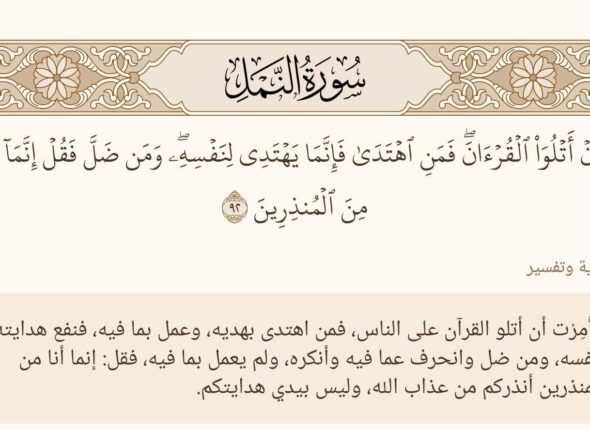 سُورَةُ النَّمۡلِ
أَتۡلُوَاْ ٱلۡقُرۡءَانَۖ فَمَنِ ٱهۡتَدَىٰ فَإِنَّمَا يَهۡتَدِي لِنَفۡسِهِۦۖ وَمَن ضَلَّ فَقُلۡ إِنَّمَآ
مِنَ ٱلۡمُنذِرِينَ ٩٢
وتفسير
أن أتلو القرآن على الناس، فمن اهتدى بهديه، وعمل بما فيه، فنفع هدايته
ومن ضل وانحرف عما فيه وأنكره، ولم يعمل بما فيه، فقل: إنما أنا من
أنذركم من عذاب الله، وليس بيدي هدايتكم.